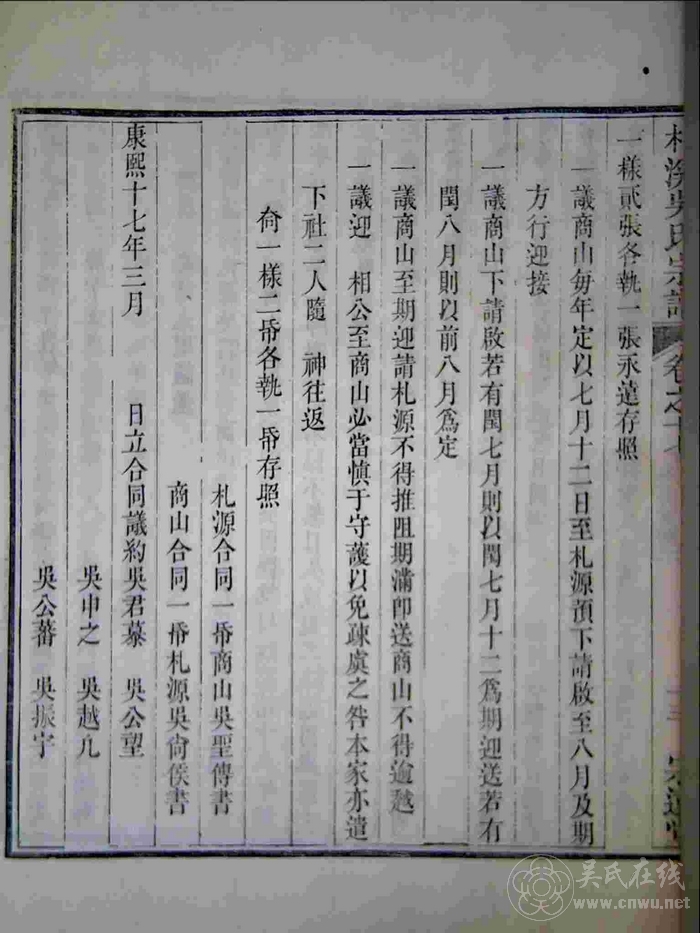 吳氏宗譜 卷之十七
一樣貳張各執一張永遠存照
一議商山每年定以七月十二日至札源預下請啟至八月及期
方行迎接
一議商山下請啟若有閏七月則以閏七月十二為期迎送若有
閏八月則以前八月為定
一議商山至期迎請札源不得推阻期滿即送商山不得逾越
一議迎 相公至商山必當慎于守護以免疎虞之咎本家亦遣
下社二人隨 神往返
合一樣二帋各執一帋存照
札源合同一帋商山吳聖傳書
商山合同一帋札源吳尙侯書
康熙十七年三月 日立合同議約吳君慕 吳公望
吳申之 吳越凡
吳公蕃 吳振宇
吳氏在线
www.cnwu.net